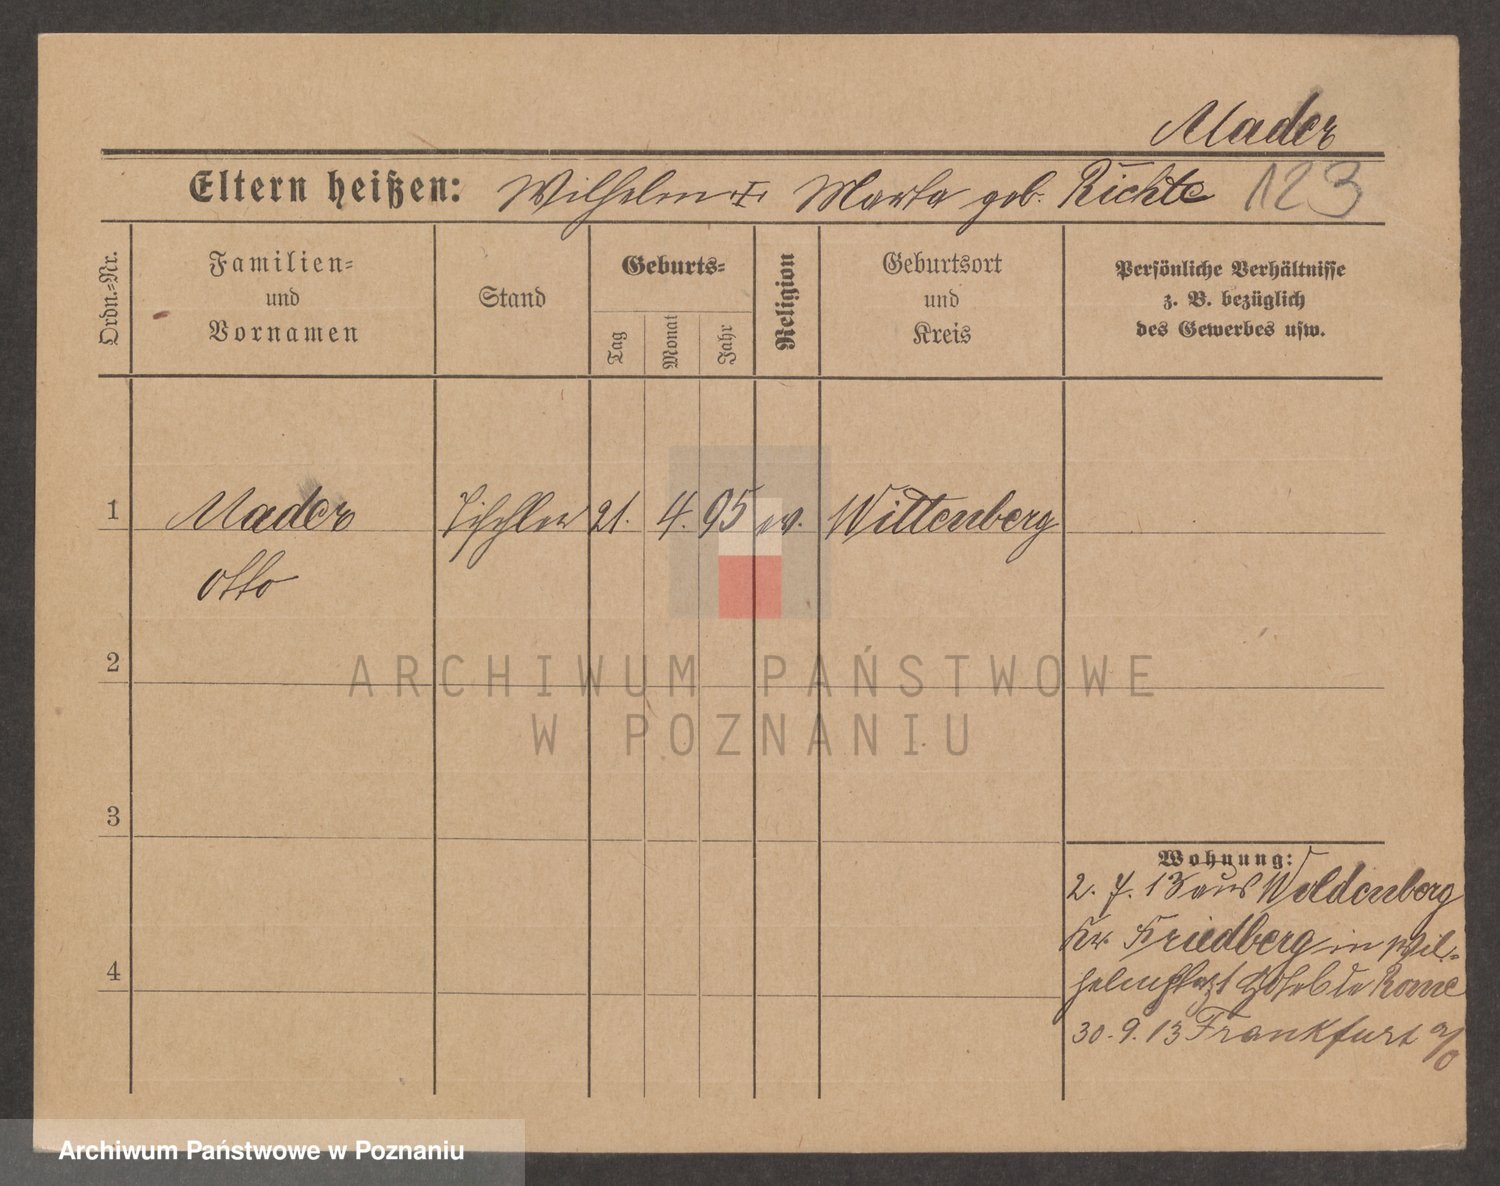 Mader
Eltern heißen: Wilhelm u. Marta geb. Richte 123
Ordn.=Nr.
Familien=
und
Vornamen
Stand
Geburts=
Tag
Monat
Jahr
Religion
Geburtsort
und
Kreis
Persönliche Verhältnisse
z. B. bezüglich
des Gewerbes usw.
1 Mader 21. 4. 95 ev. Wittenberg
Otto
2
3
4
Wohnung:
2. 7. 13 aus Woldenberg
Kr. Friedberg in Wil-
helmplatz 1 Hotel de Rome
30. 9. 13 Frankfurt a/O
ARCHIWUM PAŃSTWOWE
W POZNANIU
Archiwum Państwowe w Poznaniu